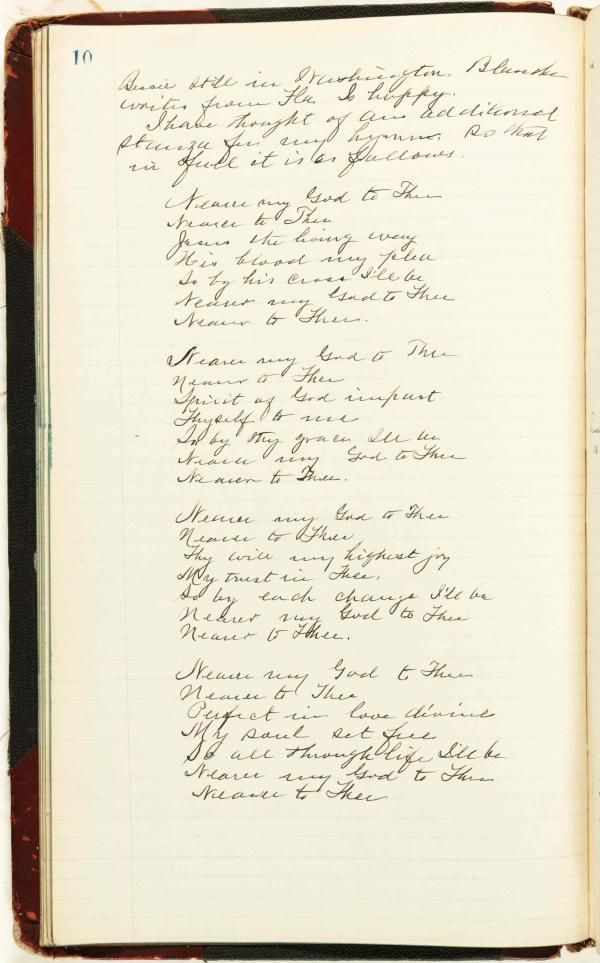 10
Bessie still in Washington. Blanche
writes from Fla. Is happy.
I have thought of an additional
stanza for my hymn, so that
in full it is as follows.
Nearer my God to Thee
Nearer to Thee
Jesus the living way
His blood my plea
So by his cross I'll be
Nearer my God to Thee
Nearer to Thee.
Nearer my God to Thee
Nearer to Thee
Spirit of God impart
Thyself to me
So by thy grace I'll be
Nearer my God to Thee
Nearer to Thee.
Nearer my God to Thee
Nearer to Thee
Thy will my highest joy
My trust in Thee.
So by each change I'll be
Nearer my God to Thee
Nearer to Thee.
Nearer my God to Thee
Nearer to Thee
Perfect in love divine
My soul set free
So all through life I'll be
Nearer my God to Thee
Nearer to Thee